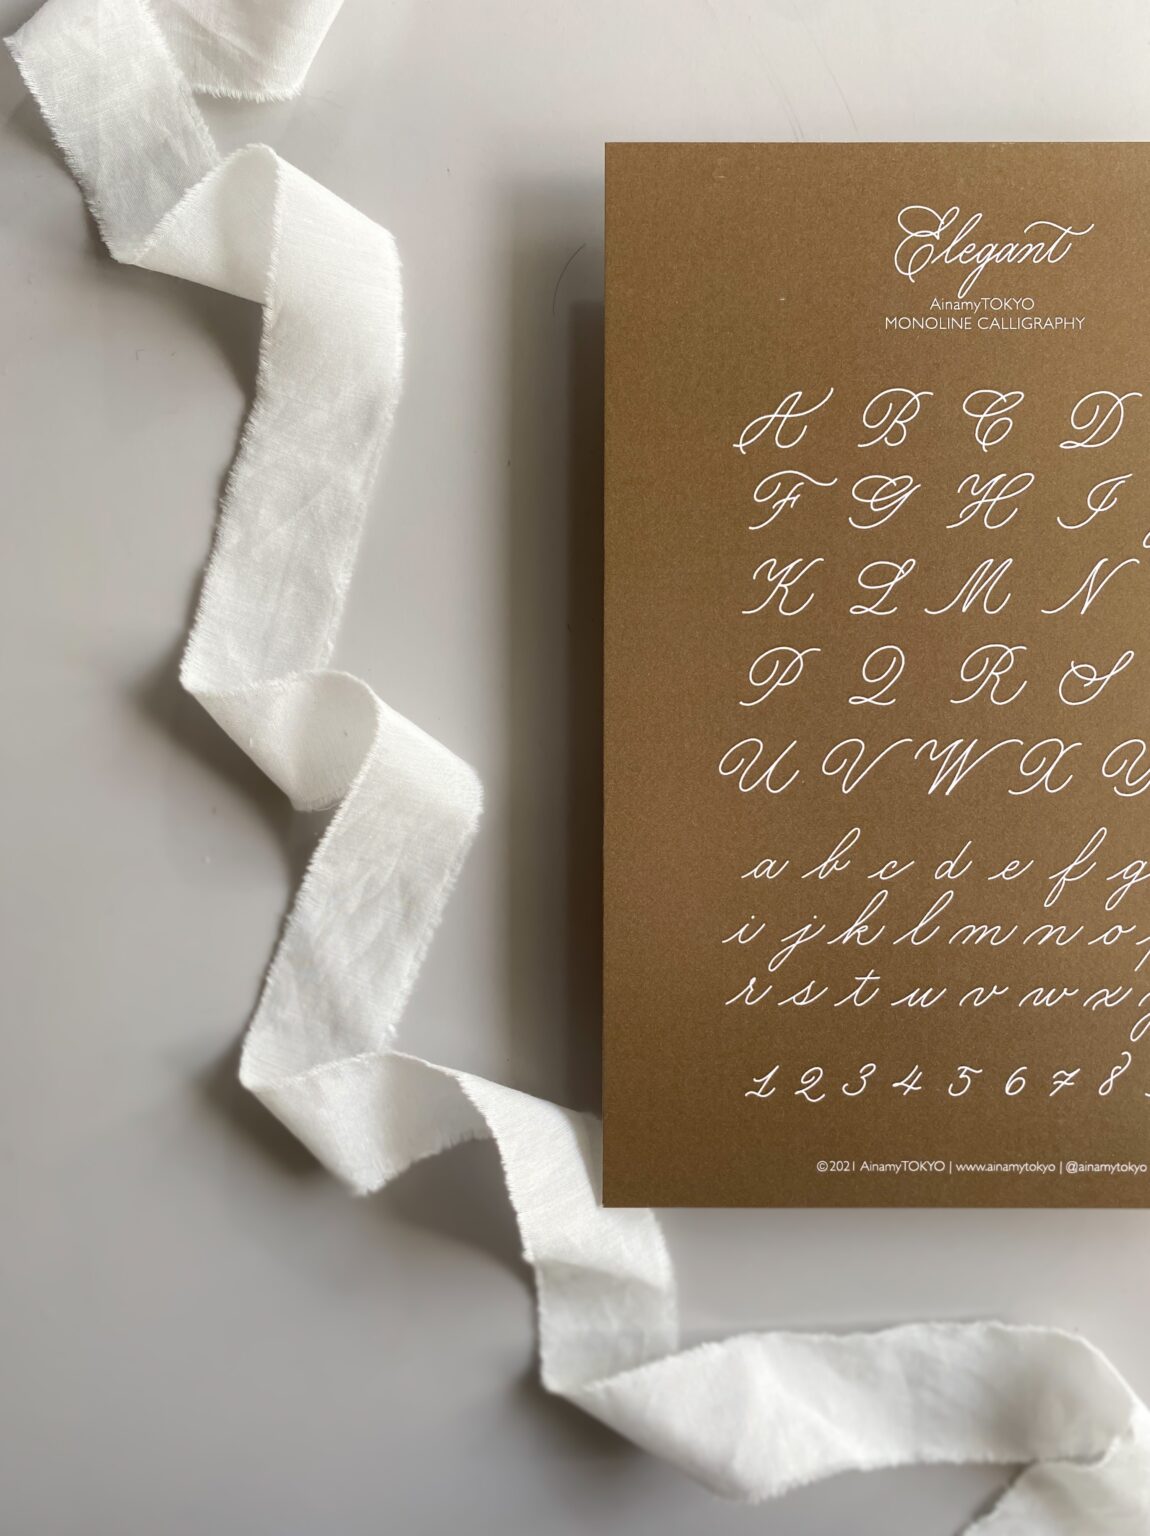 Elegant
AinamyTOKYO
MONOLINE CALLIGRAPHY
A B C D
F G H I
K L M N
P Q R S
U V W X Y
a b c d e f g
i j k l m n o
r s t u v w x
1 2 3 4 5 6 7 8
©2021 AinamyTOKYO | www.ainamytokyo | @ainamytokyo